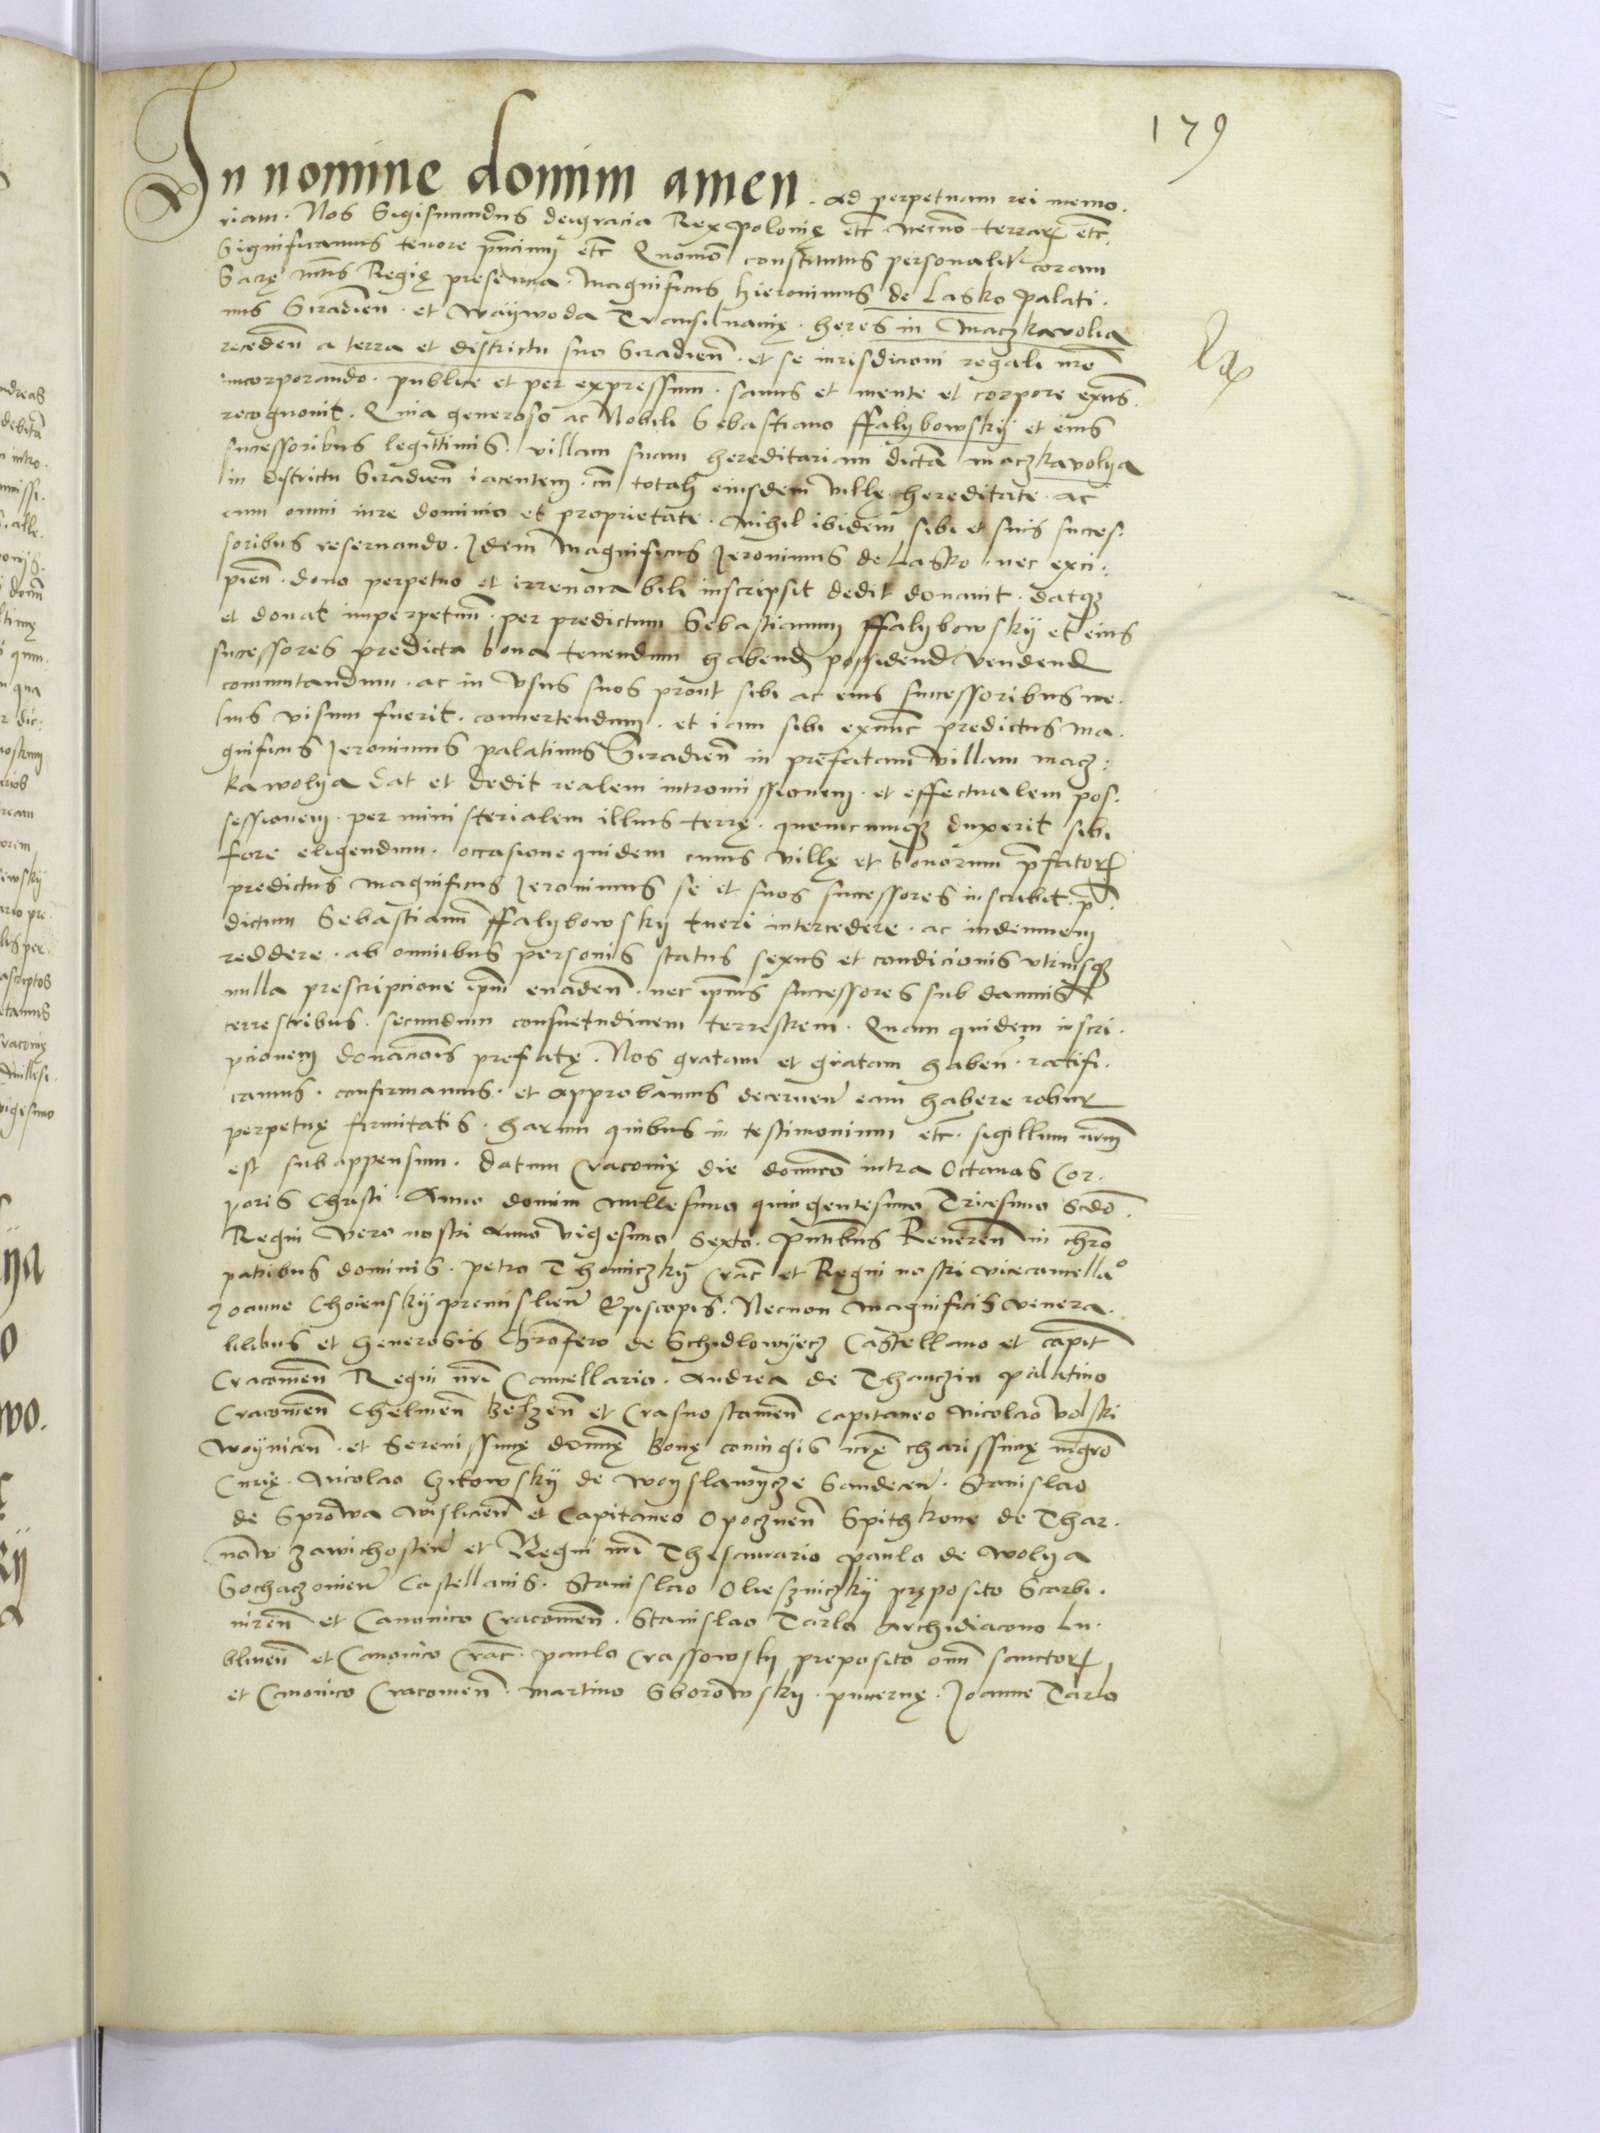 179
In nomine domini amen. Ad perpetuam rei memo.
riam. Nos Sigismundus dei gracia Rex Polonię etc̄ necno᷒ terrarꝝ etc̄.
Significamus tenore pn̄cium etc̄ Quomo᷒ constitutus personalit᷒ coram
Sacrę mt̄is Regię presencia. Magnificus Hieronimus de Lasko palati.
nus Siradien̄. et Waÿwoda Transilvanię. heres in Maczkavolia
receden̄ a terra et districtu suo Siradien̄. et se iurisdicioni regali nrē
incorporando. publice et per expressum. sanus et mente et corpore exn̄s.
recognovit. Quia generoso ac Nobili Sebastiano ffalybowskÿ et eius
successoribus legittimis. villam suam hereditariam dictā Maczkavolya
in districtu Siradien̄ iacentem. cū totali eiusdem villę hereditate. ac
cum omni iure dominio et proprietate. nihil ibidem sibi et suis succes.
soribus reservando. Idem Magnificus Jeronimus de Lasko. nec exci:
pien̄. dono perpetuo et irrevocabili inscripsit dedit donavit. datqꝫ
et donat imperpetuū. per predictum Sebastianum ffalybowskÿ et eius
successores predicta bona tenendum habend possidend vendend
commutandum. ac in usus suos prout sibi ac eius successoribus me.
lius visum fuerit. convertendum. et iam sibi exnunc predictus ma.
gnificus Jeronimus palatinus Siradien̄ in prefatam villam Macz:
kawolya dat et dedit realem intromissionem. et effectualem pos.
sessionem. per ministerialem illius terrę. quemcumqꝫ duxerit sibi
fore eligendum. occasione quidem cuius villę et bonorum p̄fatorꝝ
predictus Magnificus Jeronimus se et suos successores inscribit. p̄.
dictum Sebastianū ffalybowsky tueri intercedere. ac indemnem
reddere. ab omnibus personis status sexus et condicionis utriusqꝫ
nulla prescripcione ip̄m evaden̄. nec ip̄ius successores sub damnis
terrestribus. secundum consuetudinem terrestrem. Quam quidem inscri.
pcionem donacio᷒is prefatę. Nos gratam et gratam haben̄. ratifi.
camus. confirmamus. et approbamus decernen̄ eam habere robur
perpetuę firmitatis. harum quibus in testimonium etc̄. sigillum nrm̄
est subappensum. Datum Cracovię die dominico intra Octavas Cor.
poris Christi. Anno domini Millesimo quingentesimo Tricesimo Scdo᷒.
Regni vero nostri Anno vigesimo Sexto. Pn̄tibus Reveren̄ in chro᷒
patribus dominis. Petro Thomiczkÿ Crac̄ et Regni nostri vicecancella°
Joanne Choienskÿ premislien̄ Episcopis. Necnon Magnificis venera.
bilibus et Generosis Chro᷒fero de Schidlowyecz Castellano et capit̄
Cracovien̄ Regni nrī Cancellario. Andrea de Thanczin palatino
Cracovien̄ Chelmen̄ Belzen̄ et Crasnostavien̄ Capitaneo Nicolao Volski
Woynicen̄. et Serenissimę domnę Bonę coniugis nrę charissimę mgro᷒
Curię. Nicolao Czikowskÿ de Woyslawycze Sandecen̄. Stanislao
de Sprowa Wislicien̄ et Capitaneo Opocznen̄ Spithkone de Thar.
now Zawichosten̄ et Regni nrī Thesaurario Paulo de Wolya
Sochaczovien̄ Castellanis. Stanislao Olieszniczkÿ pręposito Scarbi.
mirien̄ et Canonico Cracovien̄. Stanislao Tarlo Archidiacono Lu.
blinen̄ et Canonico Crac̄. Paulo Crassowsky preposito om̄ sanctorꝝ
et Canonico Cracovien̄. Martino Sborowsky. pincernę. Joanne Tarlo